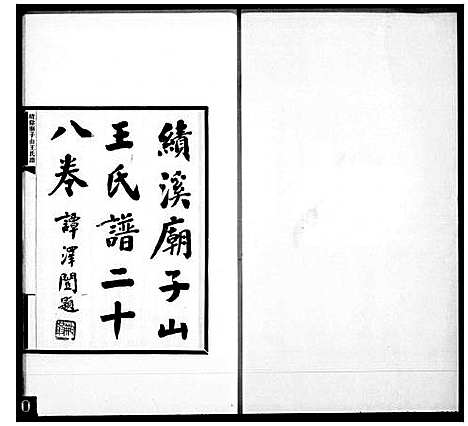 績溪廟子山
王氏譜二十
八卷 譚澤闓題
績谿廟子山王氏譜
0